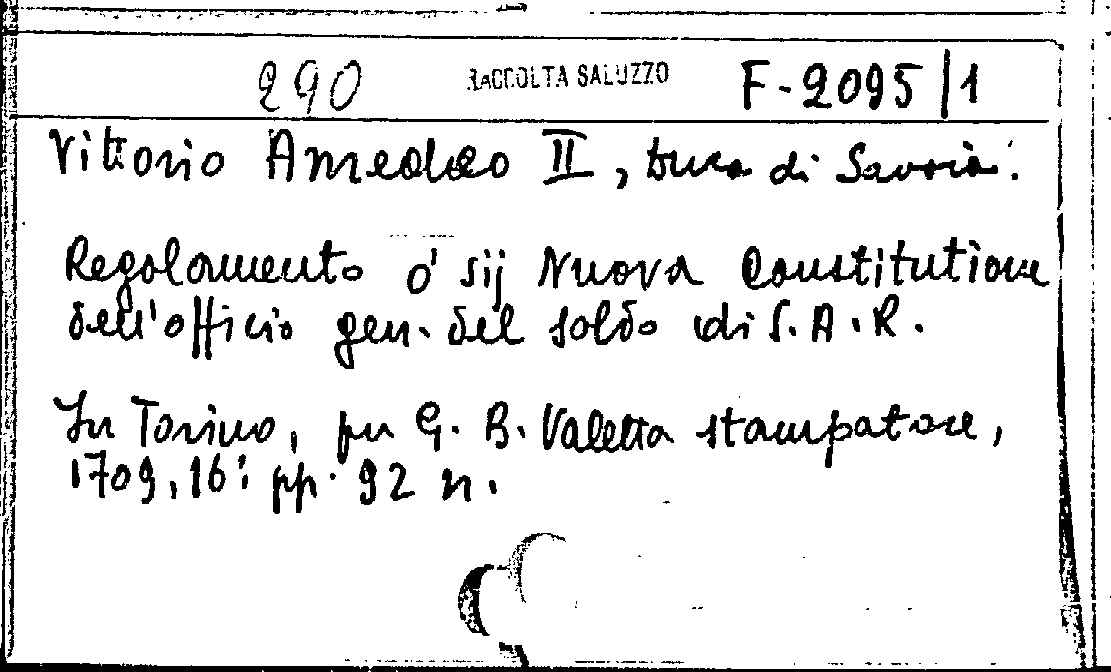 290 RACCOLTA SALUZZO F-2095/1
Vittorio Amedeo II, Duca di Savoia.
Regolamento o' sij Nuova Constitutione
dell'officio gen. del soldo di S.A.R.
In Torino, per G. B. Valetta stampatore,
1709, 16° pp. 92 n.